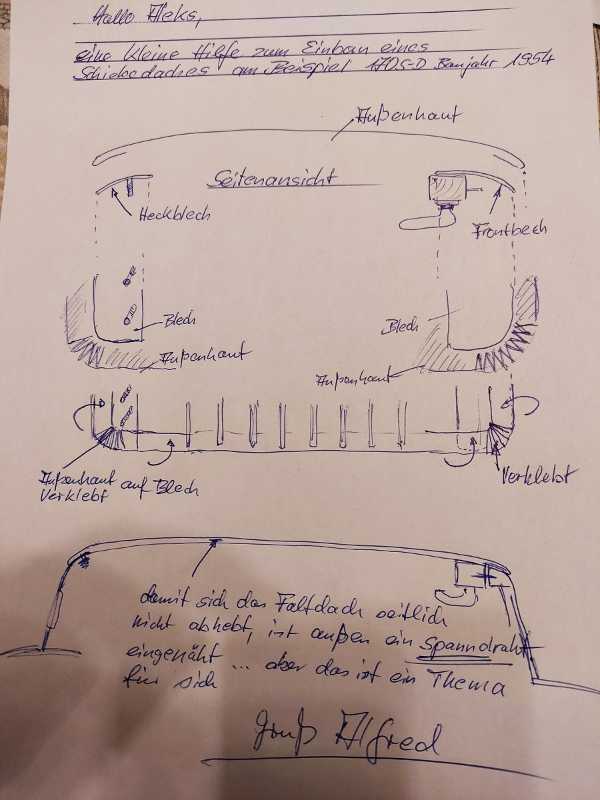 Hallo Aleks,
eine kleine Hilfe zum Einbau eines
Schiebedaches am Beispiel 170S-D Baujahr 1954
Außenhaut
Seitenansicht
Heckblech
Frontbech
Blech
Blech
Außenhaut
Außenhaut
Außenhaut auf Blech
Verklebt
Verklebt
damit sich das Faltdach seitlich
nicht abhebt, ist außen ein Spanndraht
eingenäht ... aber das ist ein Thema
für sich
Gruß Alfred